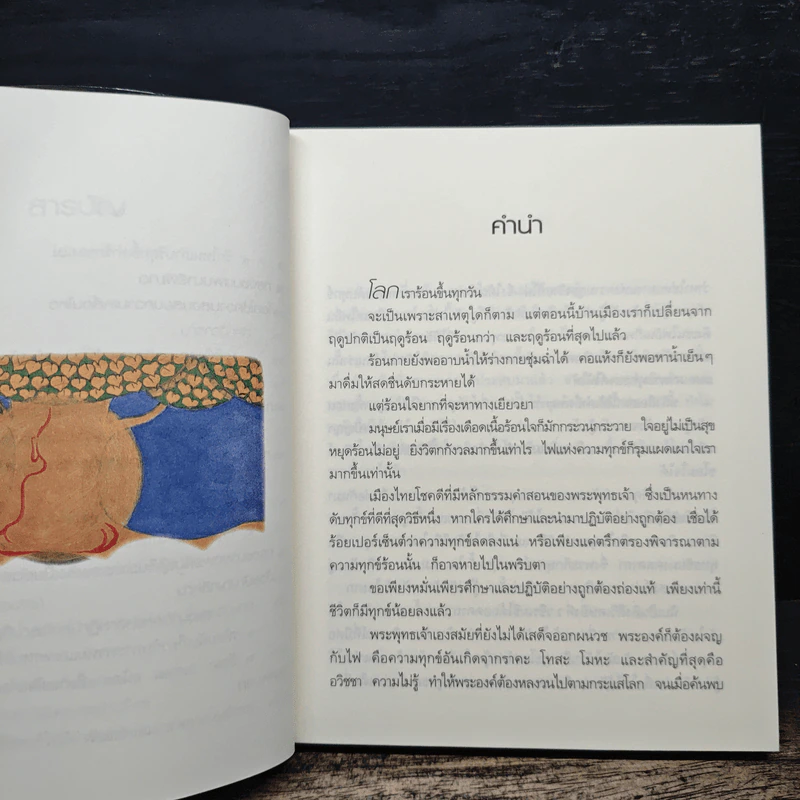 คำนำ
โลกเราร้อนขึ้นทุกวัน
จะเป็นเพราะสาเหตุใดก็ตาม แต่ตอนนี้บ้านเมืองเราก็เปลี่ยนจาก
ฤดูปกติเป็นฤดูร้อน ฤดูร้อนกว่า และฤดูร้อนที่สุดไปแล้ว
ร้อนกายยังพออาบน้ำให้ร่างกายชุ่มฉ่ำได้ คอแห้งก็ยังพอหาน้ำเย็นๆ
มาดื่มให้สดชื่นดับกระหายได้
แต่ร้อนใจยากที่จะหาทางเยียวยา
มนุษย์เราเมื่อมีเรื่องเดือดเนื้อร้อนใจก็มักกระวนกระวาย ใจอยู่ไม่เป็นสุข
หยุดร้อนไม่อยู่ ยิ่งวิตกกังวลมากขึ้นเท่าไร ไฟแห่งความทุกข์ก็รุมแผดเผาใจเรา
มากขึ้นเท่านั้น
เมืองไทยโชคดีที่มีหลักธรรมคำสอนของพระพุทธเจ้า ซึ่งเป็นหนทาง
ดับทุกข์ที่ดีที่สุดวิธีหนึ่ง หากใครได้ศึกษาและนำมาปฏิบัติอย่างถูกต้อง เชื่อได้
ร้อยเปอร์เซ็นต์ว่าความทุกข์ลดลงแน่ หรือเพียงแค่ตรึกตรองพิจารณาตาม
ความทุกข์ร้อนนั้น ก็อาจหายไปในพริบตา
ขอเพียงหมั่นเพียรศึกษาและปฏิบัติอย่างถูกต้องถ่องแท้ เพียงเท่านี้
ชีวิตก็มีทุกข์น้อยลงแล้ว
พระพุทธเจ้าเองสมัยที่ยังไม่ได้เสด็จออกผนวช พระองค์ก็ต้องผจญ
กับไฟ คือความทุกข์อันเกิดจากราคะ โทสะ โมหะ และสำคัญที่สุดคือ
อวิชชา ความไม่รู้ ทำให้พระองค์ต้องหลงวนไปตามกระแสโลก จนเมื่อค้นพบ